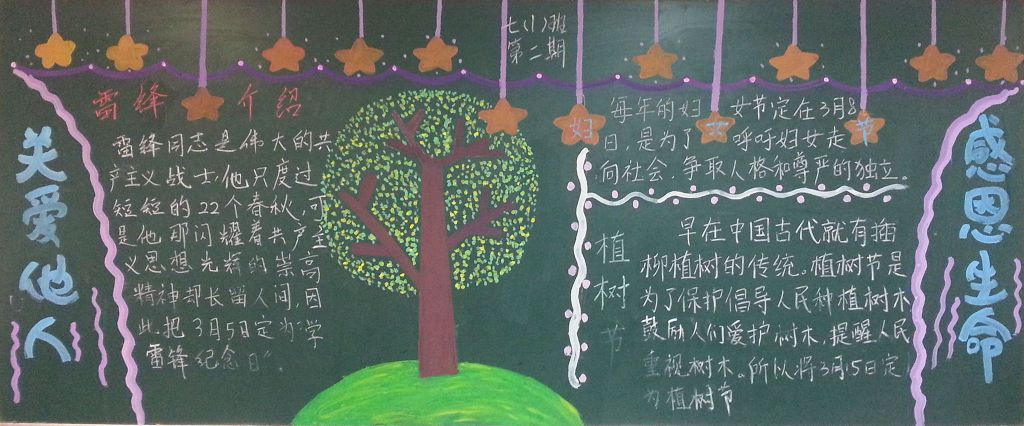 七(1)班
第二期
关爱他人
雷锋 介绍
雷锋同志是伟大的共
产主义战士,他只度过
短短的22个春秋,可
是他那闪耀着共产主
义思想光辉的崇高
精神却长留人间,因
此把3月5日定为“学
雷锋纪念日”。
妇女节
每年的妇女节定在3月8
日,是为了呼吁妇女走
向社会,争取人格和尊严的独立。
植树节
早在中国古代就有插
柳植树的传统。植树节是
为了保护倡导人民种植树木
鼓励人们爱护树木,提醒人民
重视树木。所以将3月15日定
为植树节
感恩生命